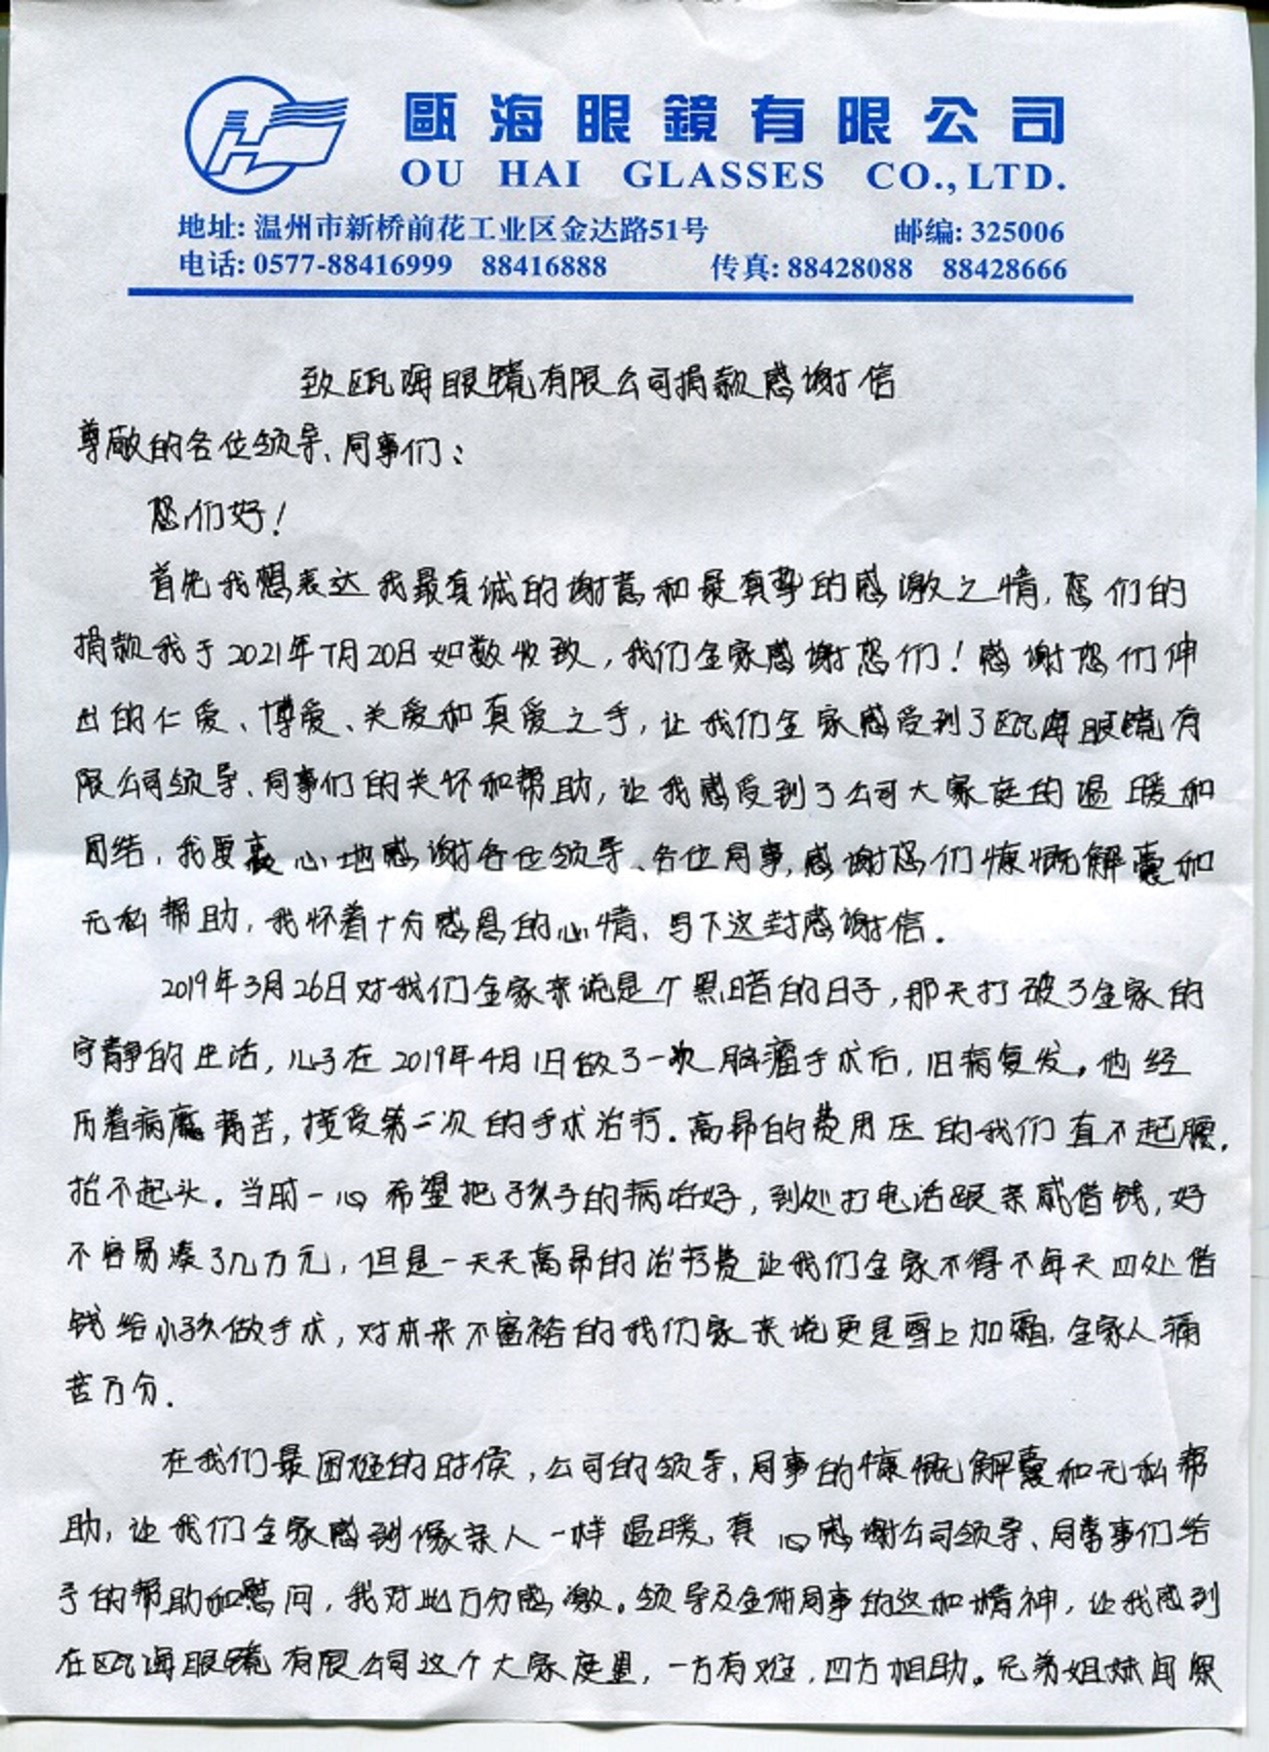 甌海眼鏡有限公司
OU HAI GLASSES CO., LTD.
地址: 温州市新桥前花工业区金达路51号 邮编: 325006
电话: 0577-88416999 88416888 传真: 88428088 88428666
致瓯海眼镜有限公司捐款感谢信
尊敬的各位领导、同事们:
您们好!
首先我想表达我最真诚的谢意和最真挚的感激之情,您们的
捐款我于2021年7月20日如数收致,我们全家感谢您们!感谢您们伸
出的仁爱、博爱、关爱和真爱之手,让我们全家感受到了瓯海眼镜有
限公司领导、同事们的关怀和帮助,让我感受到了公司大家庭的温暖和
团结,我要衷心地感谢各位领导、各位同事,感谢您们慷慨解囊和
无私帮助,我怀着十分感恩的心情、写下这封感谢信.
2019年3月26日对我们全家来说是个黑暗的日子,那天打破了全家的
宁静的生活,儿子在2019年4月1日做了一次脑瘤手术后,旧病复发。他经
历着病魔痛苦,接受第二次的手术治疗.高昂的费用压的我们直不起腰,
抬不起头。当时一心希望把孩子的病治好,到处打电话跟亲戚借钱,好
不容易凑了几万元,但是一天天高昂的治疗费让我们全家不得不每天四处借
钱给小孩做手术,对本来不富裕的我们家来说更是雪上加霜,全家人痛
苦万分.
在我们最困难的时候,公司的领导,同事的慷慨解囊和无私帮
助,让我们全家感到像亲人一样温暖,真心感谢公司领导、同事们给
予的帮助和慰问,我对此万分感激。领导及全体同事的这和精神,让我感到
在瓯海眼镜有限公司这个大家庭里,一方有难,四方相助。兄弟姐妹间